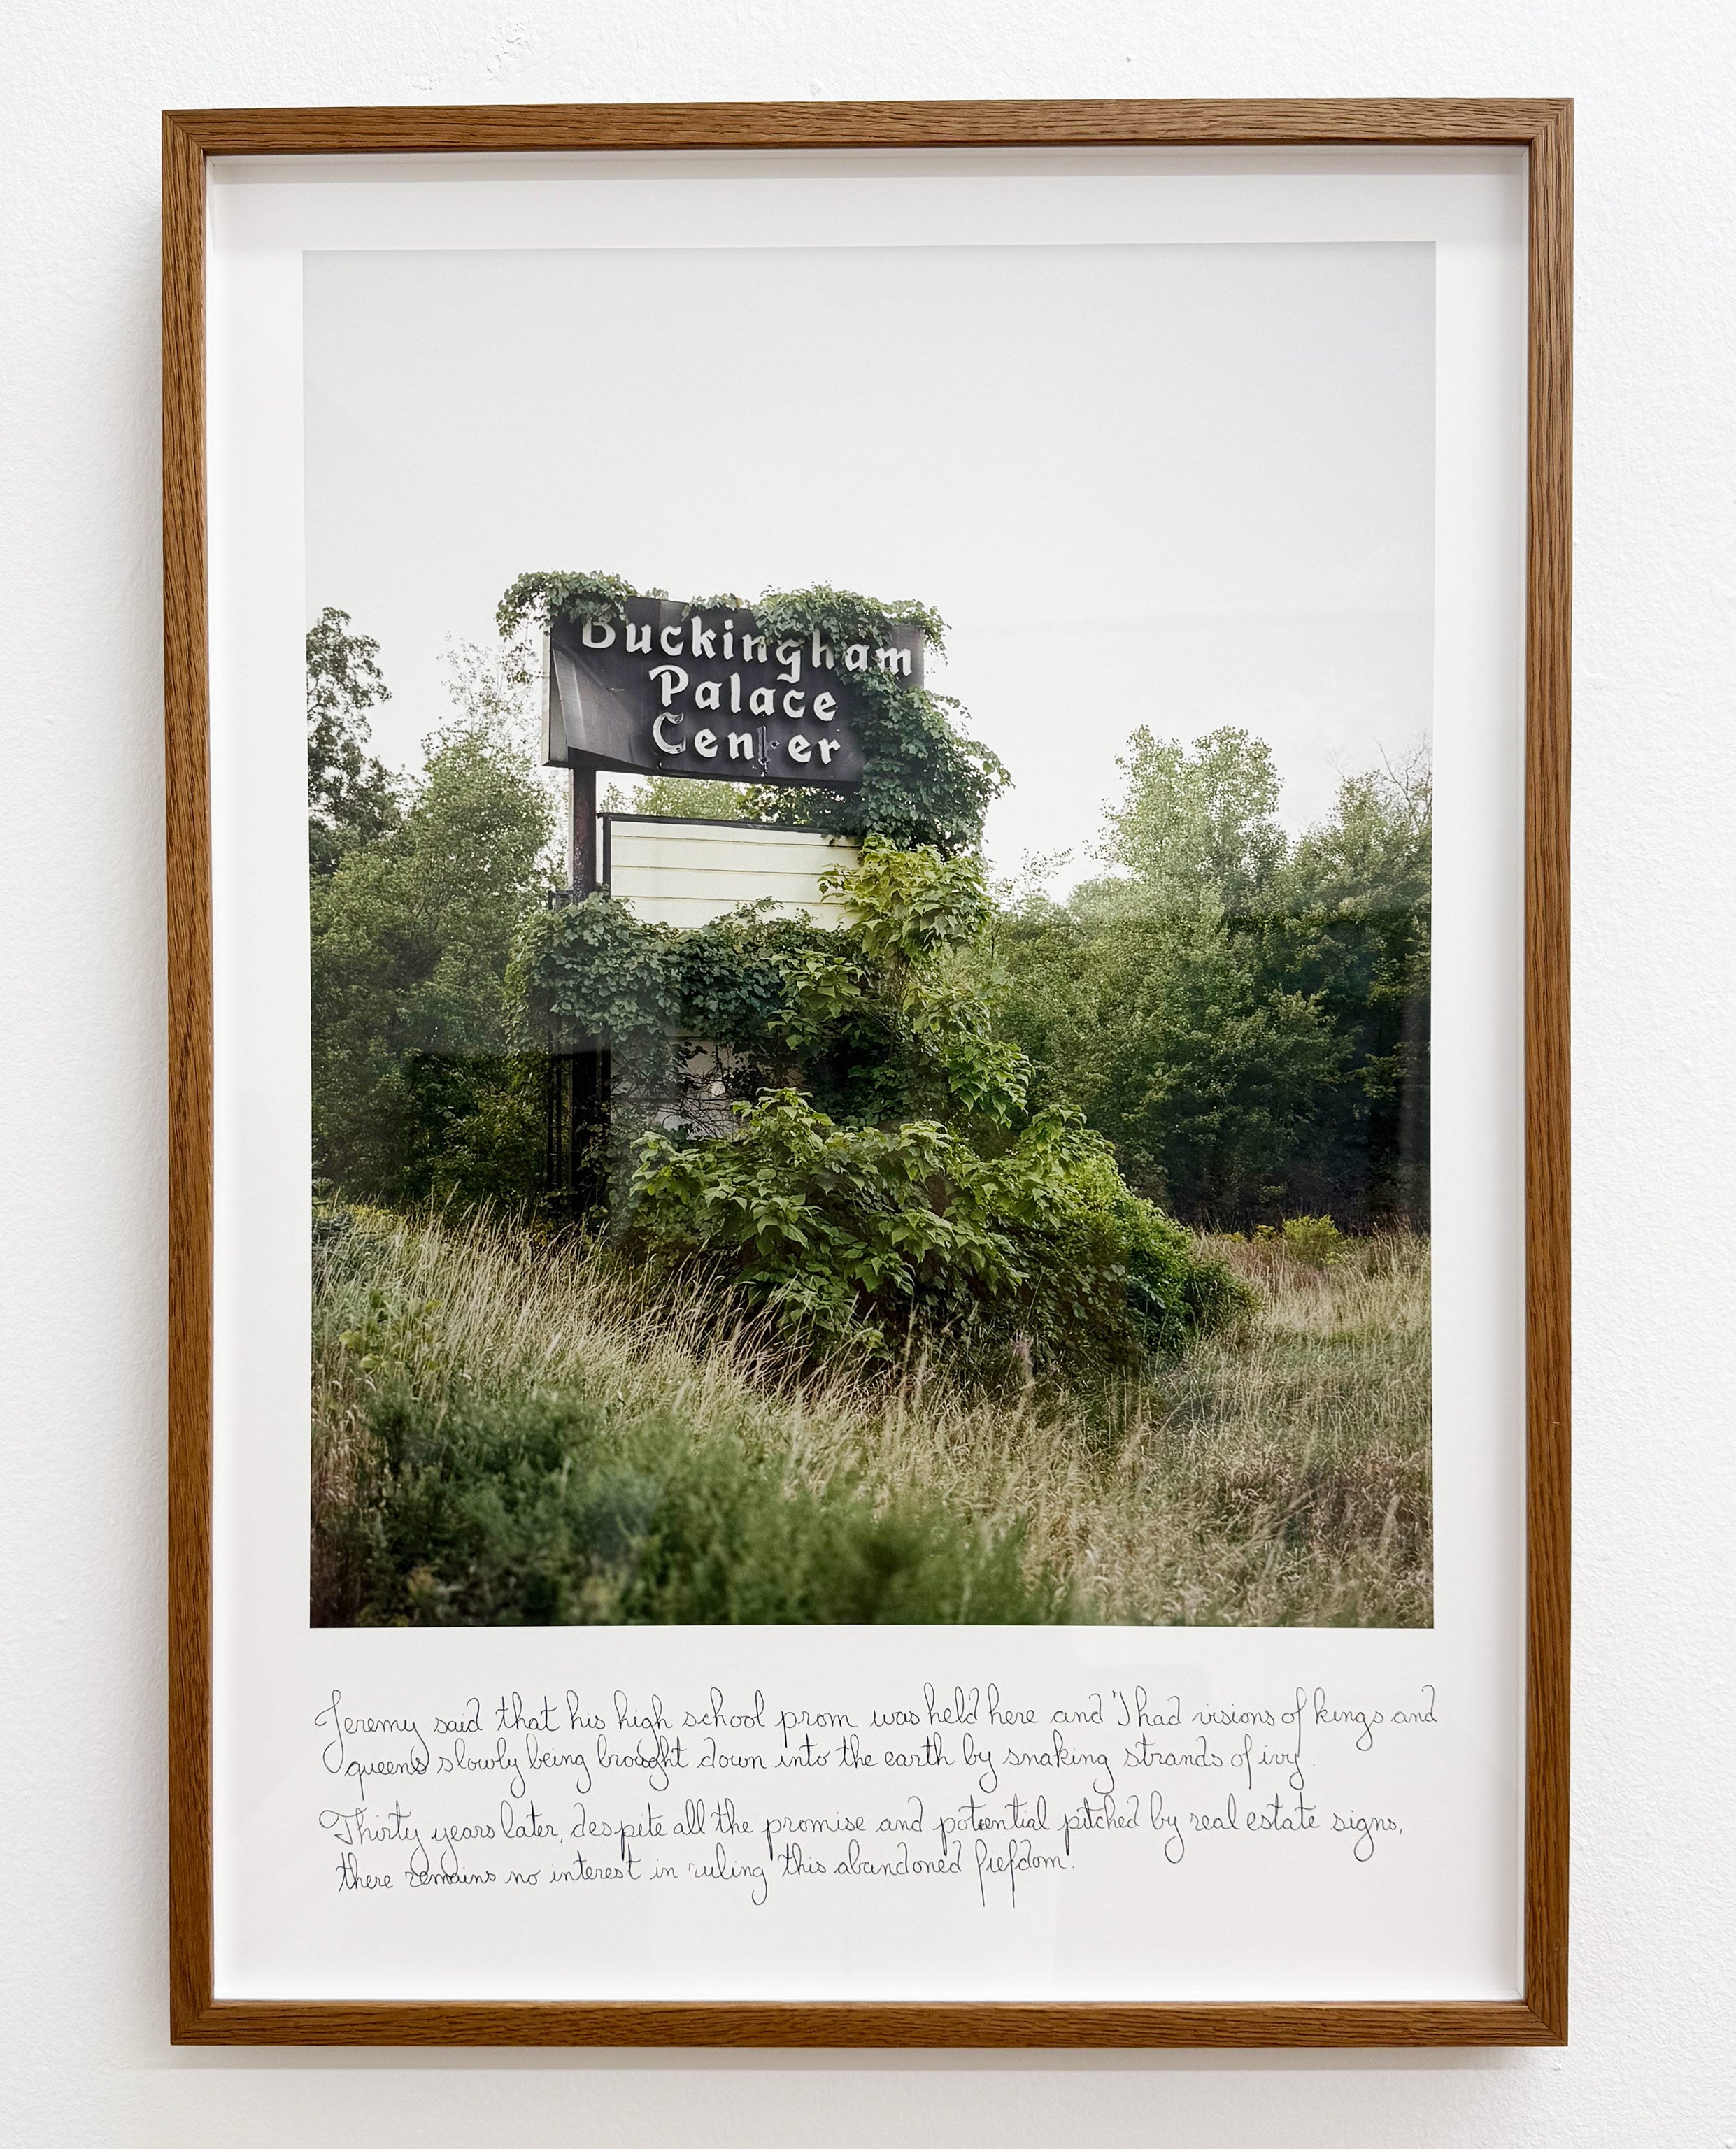 Buckingham
Palace
Center
Jeremy said that his high school prom was held here and I had visions of kings and
queens slowly being brought down into the earth by snaking strands of ivy.
Thirty years later, despite all the promise and potential pitched by real estate signs,
there remains no interest in ruling this abandoned fiefdom.